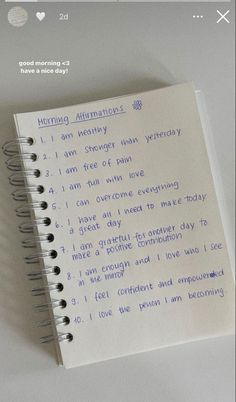 2d
good morning <3
have a nice day!
Morning Affirmations
1. I am healthy
2. I am stronger than yesterday
3. I am free of pain
4. I am full with love
5. I can overcome everything
6. I have all I need to make today
a great day
7. I am grateful for another day to
make a positive contribution
8. I am enough and I love who I see
in the mirror
9. I feel confident and empowered
10. I love the person I am becoming.